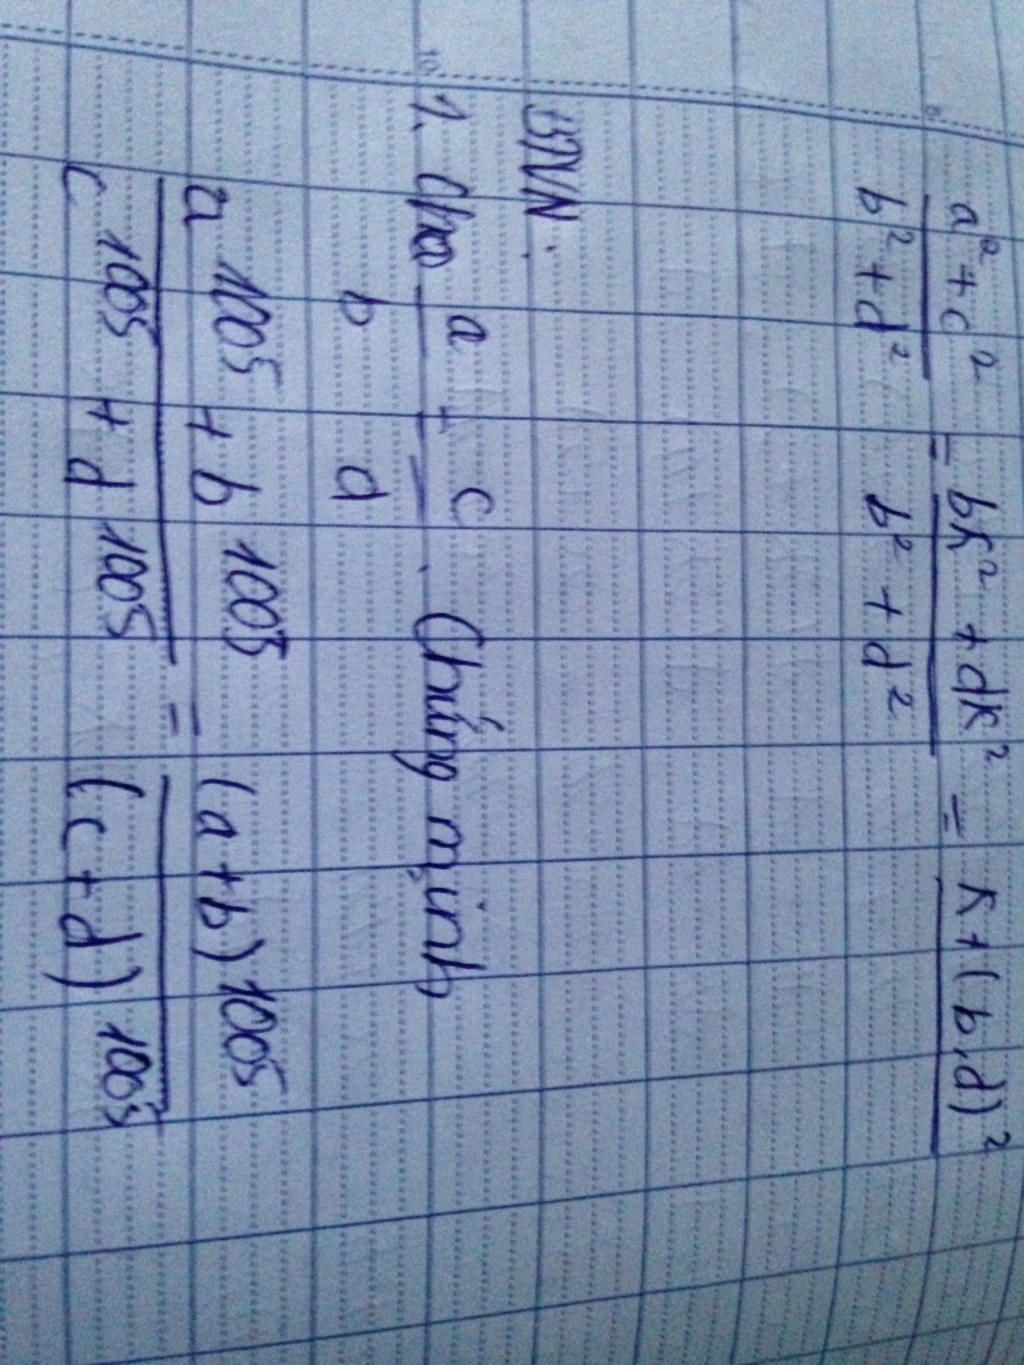 a²+c² / b²+d² = bk² + dk² / b² + d² = k+(b,d)²
BTVN:
1. cho a/b = c/d. Chứng minh
a^1005 + b^1005 / c^1005 + d^1005 = (a+b)^1005 / (c+d)^1005